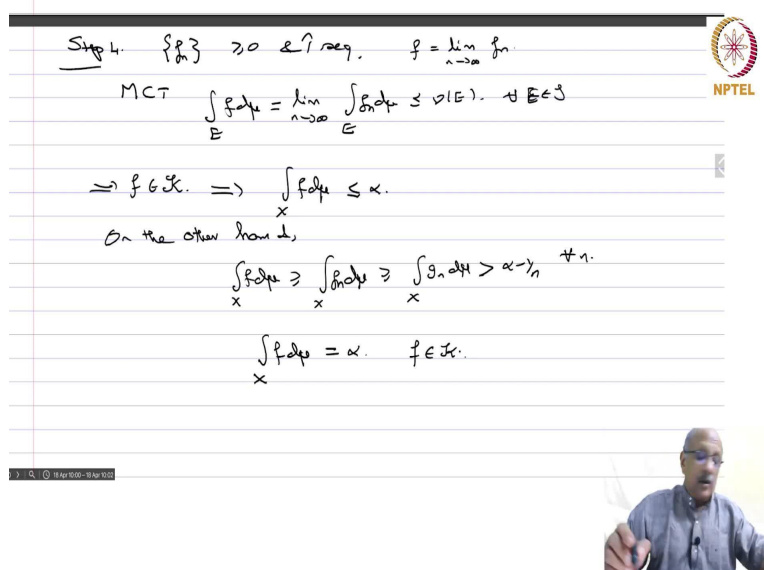 Step 4. {fₙ} ≥0 & ↑ seq. f = lim n→∞ fₙ.
NPTEL
MCT ∫_E f dμ = lim n→∞ ∫_E fₙ dμ ≤ ν(E). ∀ E∈S
⇒ f ∈ K. ⇒ ∫_X f dμ ≤ α.
On the other hand,
∫_X f dμ ≥ ∫_X fₙ dμ ≥ ∫_X gₙ dμ > α-1/n ∀ n.
∫_X f dμ = α. f ∈ K.
18 Apr 10:00 - 18 Apr 10:02